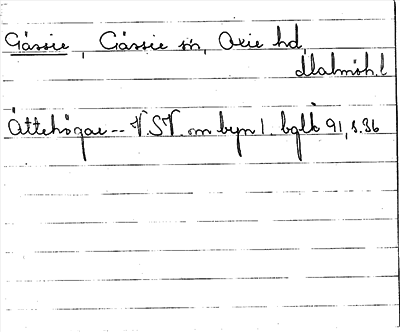 Gässie, Gässie sn, Oxie hd,
Malmöh. l
Ättehögar -- V. SV. om byn 1. bglb 91, s. 36